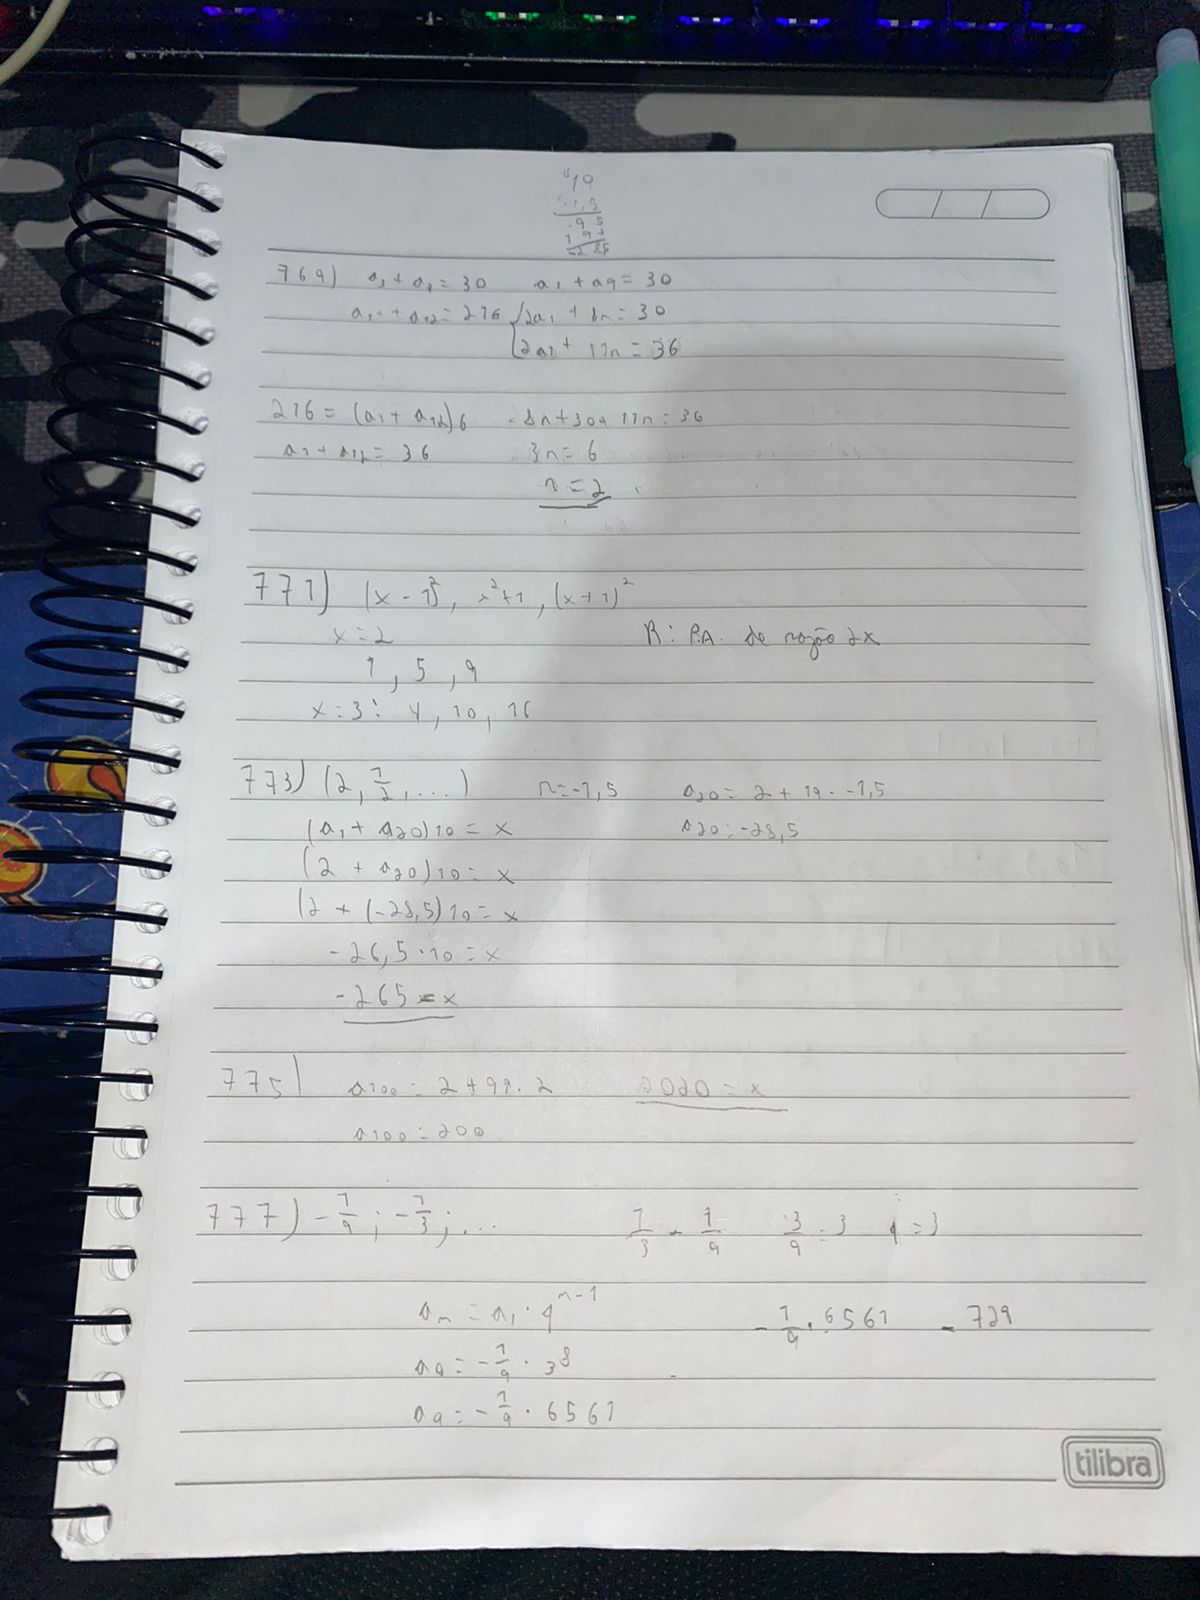 19
1,5
95
19+
28 5
769) a1 + a9 = 30 a1 + a9 = 30
a1 + a12 = 216 { 2a1 + 8r = 30
2a1 + 11r = 36
216 = (a1 + a12)6 -8r+30+11r=36
a1 + a12 = 36 3r = 6
r = 2
771) (x-1)², x²+1, (x+1)²
x=2 R: P.A. de razão 2x
1, 5, 9
x=3: 4, 10, 16
773) (2, 1/2, ...) r=-1,5 a20 = 2 + 19 · -1,5
(a1 + a20)10 = x a20 = -28,5
(2 + a20)10 = x
(2 + (-28,5)10 = x
-26,5 · 10 = x
-265 = x
775) a100 = 2 + 99 · 2 2020 = x
a100 = 200
777) -1/9 ; -1/3 ; ... 1/3 - 1/9 3/9 = 3 q = 3
an = a1 · q^n-1 -1/9 · 6561 - 729
a9 = -1/9 · 3^8
a9 = -1/9 · 6561
tilibra